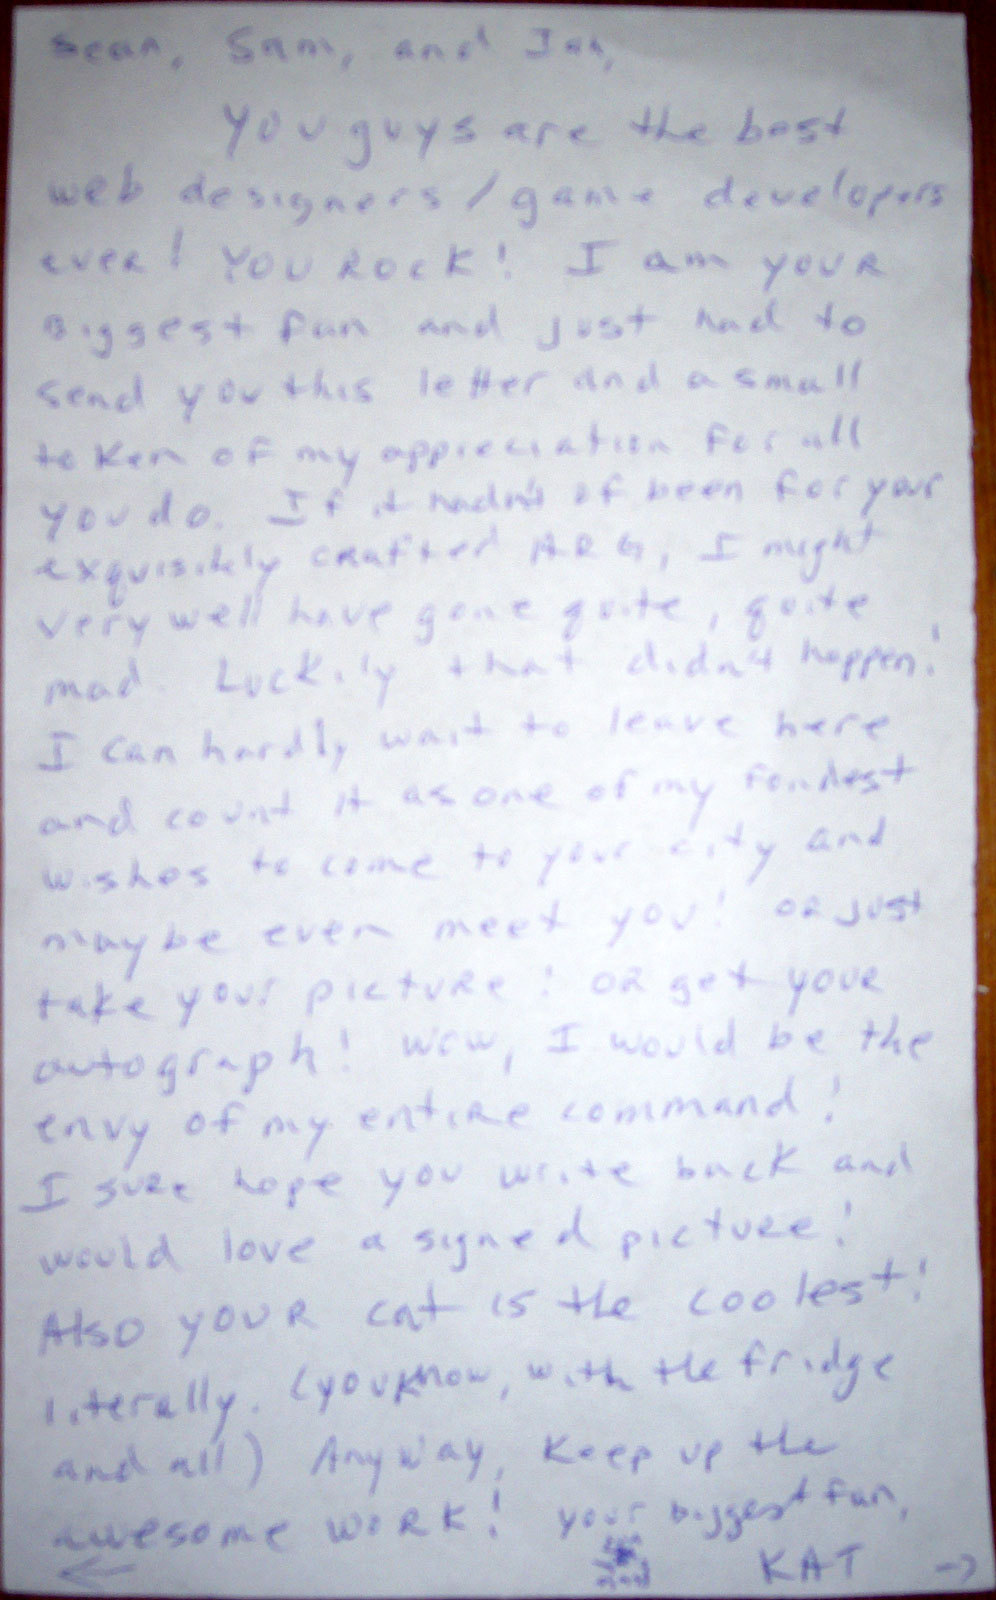 Sean, Sam, and Ian,
You guys are the best
web designers/game developers
ever! YOU ROCK! I am YOUR
Biggest fan and just had to
send you this letter and a small
token of my appreciation for all
you do. If it hadn't of been for your
exquisitely crafted ARG, I might
very well have gone quite, quite
mad. Luckily that didn't happen!
I can hardly wait to leave here
and count it as one of my fondest
wishes to come to your city and
maybe even meet you! OR just
take your picture! OR get your
autograph! Wow, I would be the
envy of my entire command!
I sure hope you write back and
would love a signed picture!
Also YOUR cat is the coolest!
literally. (you know, with the fridge
and all) Anyway, Keep up the
awesome WORK! your biggest fan,
← KAT →